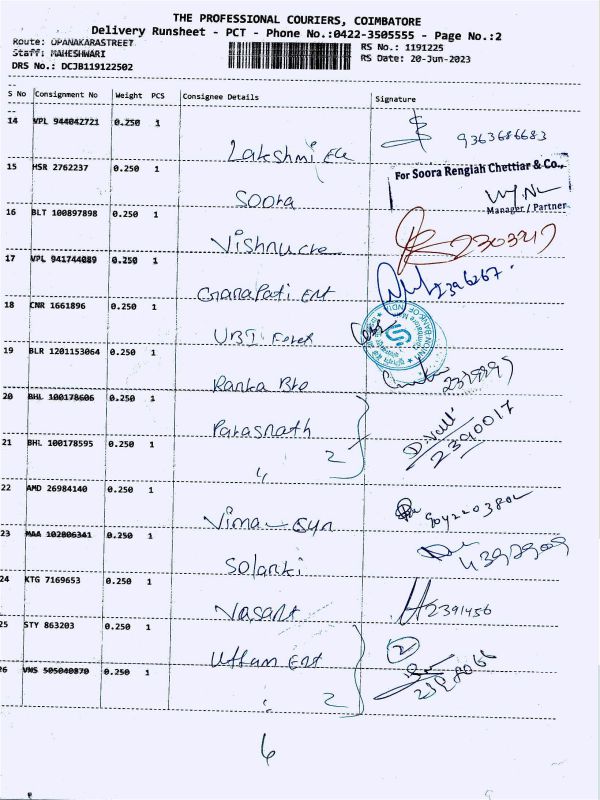 THE PROFESSIONAL COURIERS, COIMBATORE
Delivery Runsheet - PCT - Phone No.:0422-3505555 - Page No.:2
Route: OPANAKARASTREET
RS No.: 1191225
Staff: MAHESHWARI
RS Date: 20-Jun-2023
DRS No.: DCJB119122502
S No Consignment No Weight PCS Consignee Details Signature
14 VPL 944042721 0.250 1
Lakshmi Ele 9363686683
15 HSR 2762237 0.250 1
For Soora Rengiah Chettiar & Co.,
Soora
Manager / Partner
16 BLT 100897898 0.250 1
Vishnu 2303947
17 VPL 941744089 0.250 1
Ganapati Ent 2396267
18 CNR 1661896 0.250 1
UBI Forex
19 BLR 1201153064 0.250 1
Ranka Bro
20 BHL 100178606 0.250 1
Parasnath
2390017
21 BHL 100178595 0.250 1
" 2
22 AMD 26984140 0.250 1
Vimal Gyn
23 MAA 102806341 0.250 1
Solanki
24 KTG 7169653 0.250 1
Vasant 2391456
25 STY 863203 0.250 1
Uttam Ent 2
26 VNS 505040870 0.250 1
" 2
6